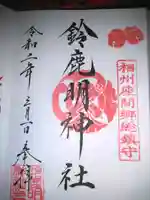 相州座間郷総鎮守
鈴鹿明神社
令和二年三月一日 奉拝